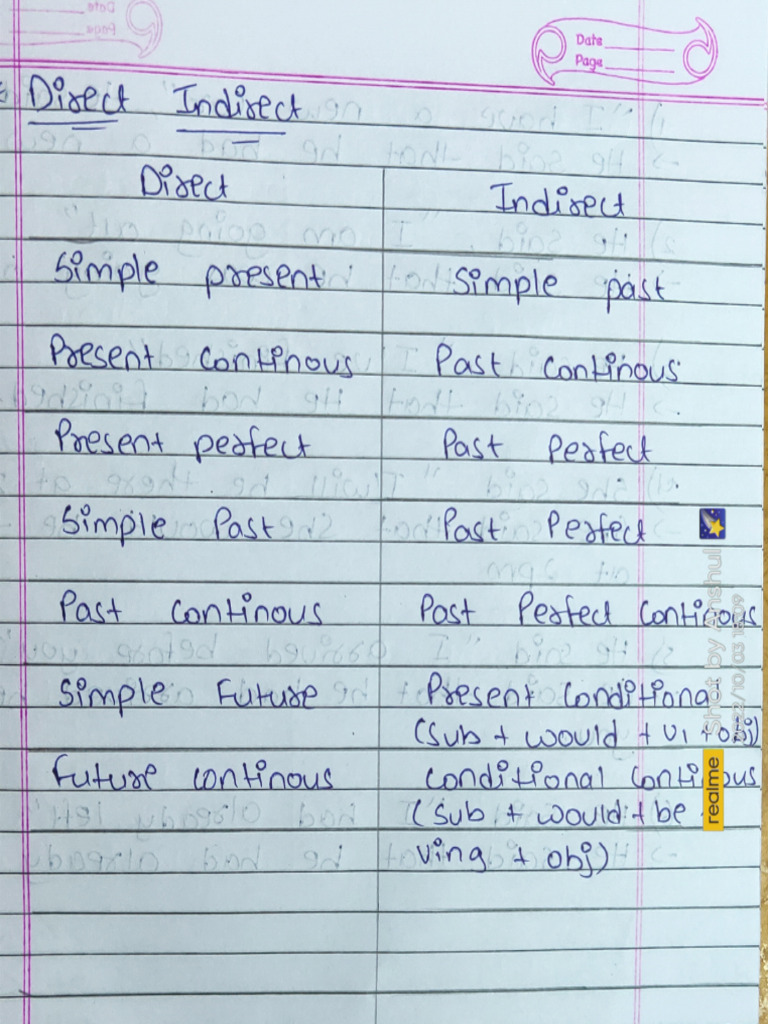 Date
Page
Direct Indirect
Direct Indirect
Simple present Simple past
Present continous Past continous
Present perfect Past Perfect
Simple Past Past Perfect
Past continous Past Perfect Continous
Simple Future Present Conditional
(Sub + would + V1 + obj)
Future continous Conditional Continous
(Sub + would + be
Ving + obj)
realme Shot by Anshul